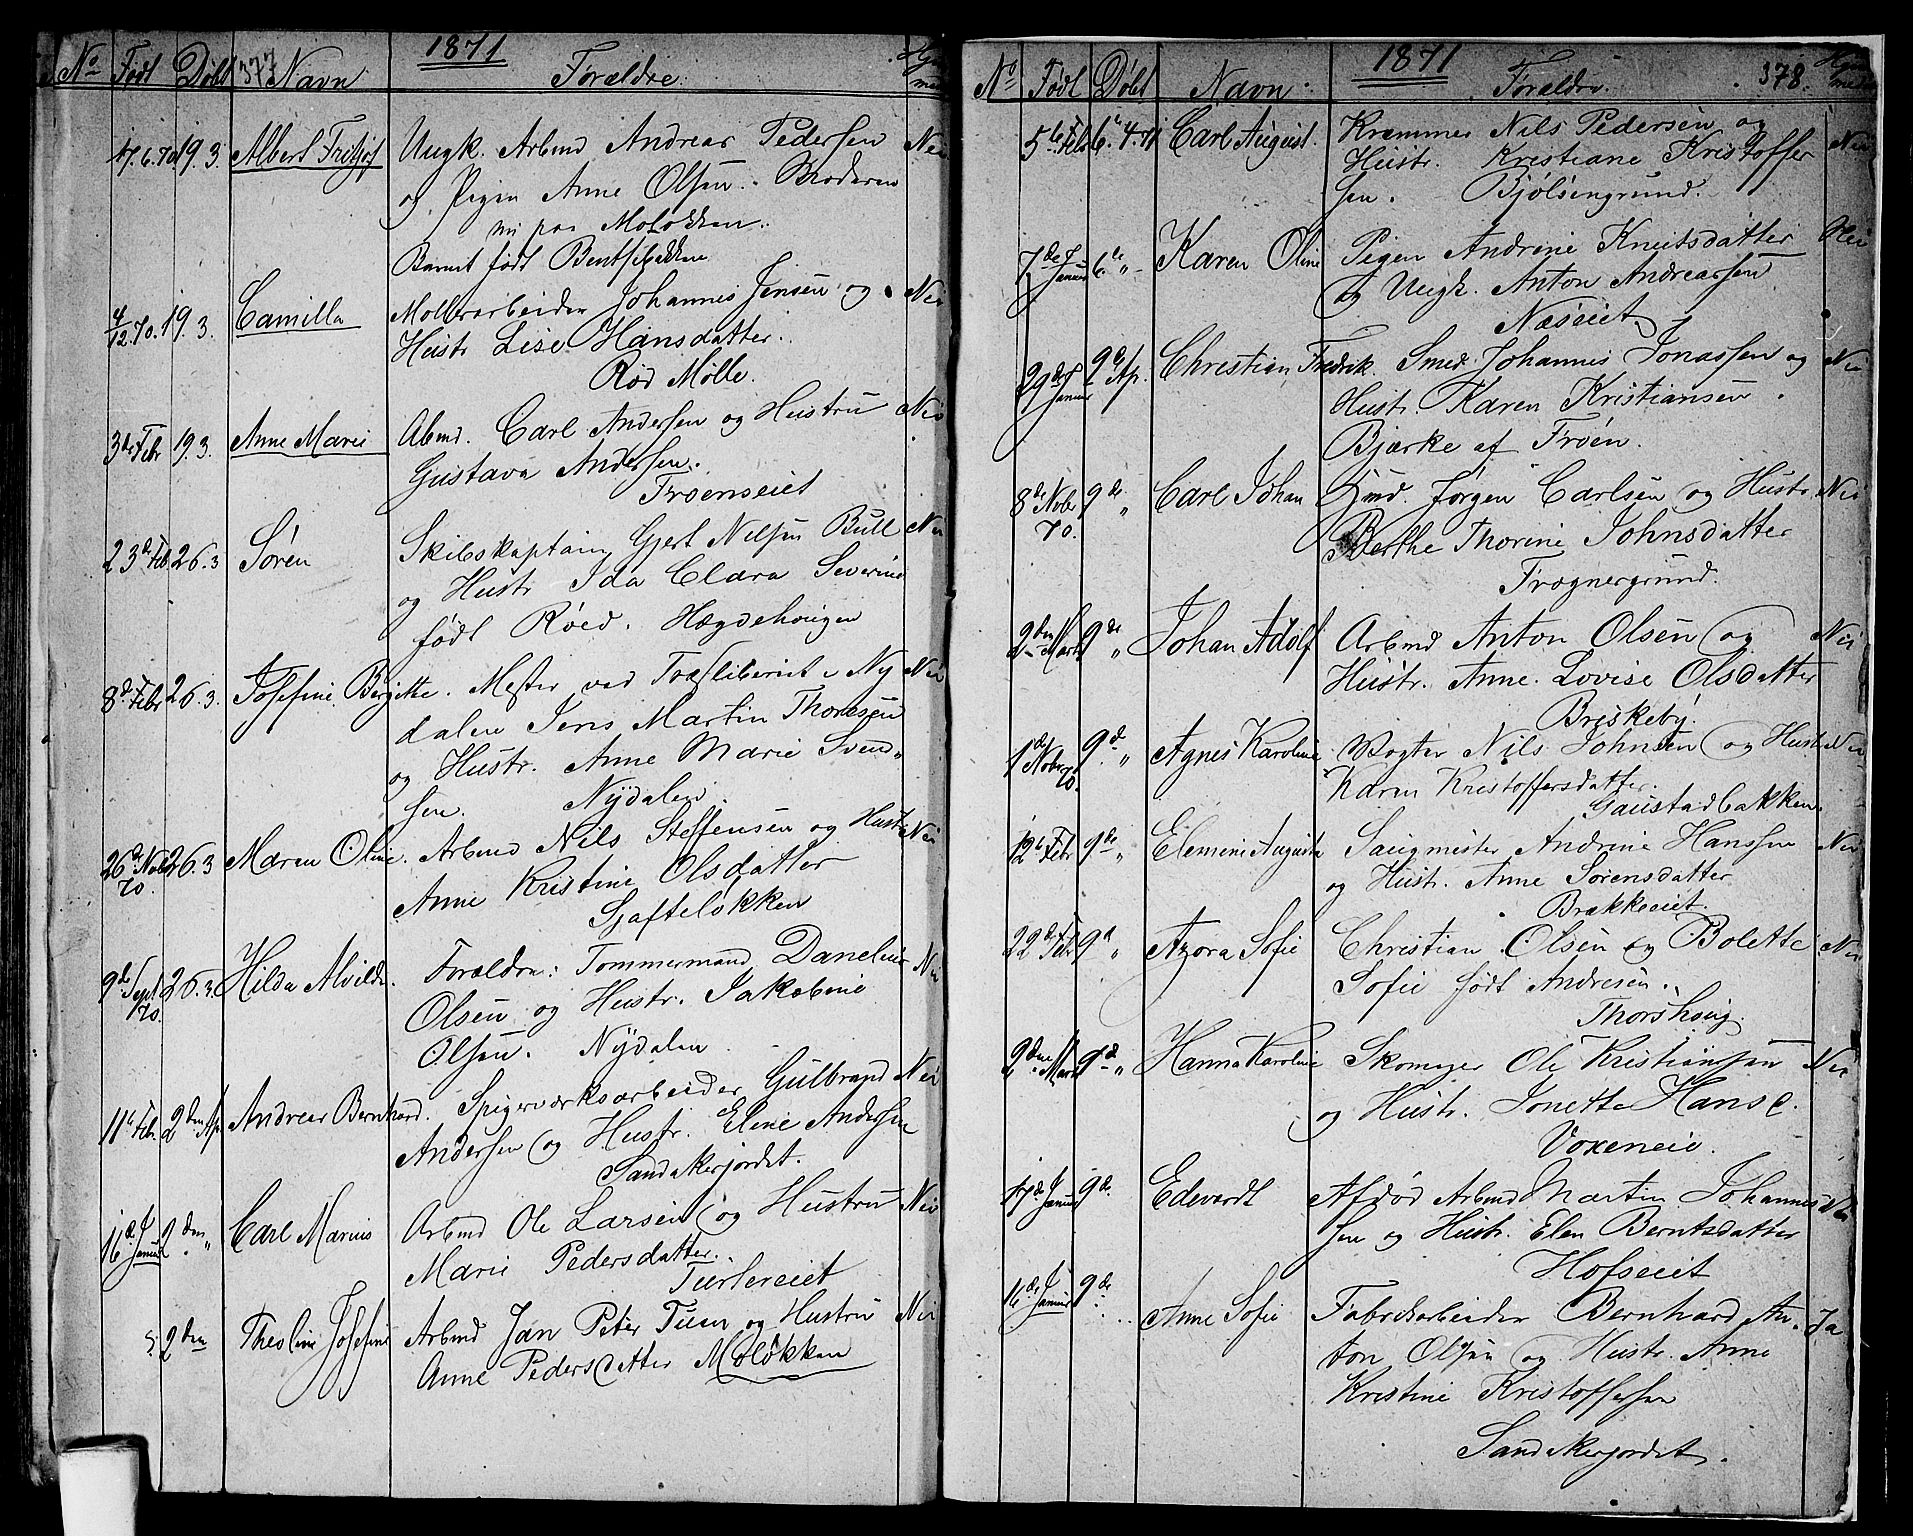 1871
No Født Døbt 377 Navn Forældre.
17.6.70 19.3. Albert Fritjof Ungk. Arbmd Andreas Pedersen Nei
og Pigen Anne Olsen.
Barnet født
4/12.70. 19.3. Camilla Møllerarbeider Johannes Jensen og Nei
Hustr Lise Hansdatter.
Rød Mølle.
3de Febr 19.3. Anne Marie Abmd. Carl Andersen og Hustru Nei
Gustava Andersen.
Frøenseiet
23de Feb 26.3 Søren Skibskaptain Gjert Nilsen Bull Nei
og Hustr Ida Clara Severine
født Røed. Hægdehougen
8de Febr 26.3. Josefine Bergitte. Mester ved Træsliberiet i Ny Nei
dalen Jens Martin Thoresen
og Hustr. Anne Marie Svend„
sen. Nydalen.
26de Nobr 70. 26.3 Maren Oline. Arbmd Nils Steffensen og Hustr Nei
Anne Kristine Olsdatter
Sjafteløkken
9de Sept 70. 26.3. Hilda Alvilde. Forældre: Tømmermand Danelius Nei
Olsen og Hustr. Jakobine
Olsen. Nydalen
11te Febr. 2den Ap Andreas Bernhard. Spigerværksarbeider Gulbrand Nei
Andersen og Hustr. Eline Andersen
Sandakerjordet.
16de Januar 2den „ Carl Marius Arbmd Ole Larsen og Hustru Nei
Marie Pedersdatter.
2den Josefine Arbmd Jan Peter og Hustru Nei
Anne Pedersdatter Moløkken
1871
No Født Døbt Navn. Forældre. 378.
5te Feb 6te 4.71 Carl August. Kræmmer Nils Pedersen og Nei
Hustr. Kristiane Kristoffer
sen. Bjølsengrund.
7de Januar 6te „ Karen Oline Pigen Andrine Knutsdatter Nei
og Ungk. Anton Andreassen
Næseiet
29de Januar 9de Ap. Christian Fredrik. Smed Johannes Jonassen og Nei
Hustr. Karen Kristiansen.
Bjærke af Frøen.
8de Nobr 70. 9de „ Carl Johan Gmd. Jørgen Carlsen og Hustr. Nei
Berthe Thorine Johnsdatter
Frognergrund.
2den Marts 9de „ Johan Adolf Arbmd Anton Olsen og Nei
Hustr. Anne Lovise Olsdatter
Briskeby.
1de Nobr 70. 9de „ Agnes Karoline Vogter Nils Johnsen og Hust Nei
Karen Kristoffersdatter.
Gaustadbakken.
12te Febr 9de „ Elemine Augusta Saugmester Andrine Hanssen Nei
og Hustr. Anne Sørensdatter
Brækkeeiet.
22de Febr 9de „ Azora Sofie Christian Olsen og Bolette Nei
Sofie født Andresen.
Thorshoug.
9den Marts 9de „ Hanna Karoline Skomager Ole Kristiansen Nei
og Hustr. Jonetta Hans
Voxeneie.
17de Januar 9de. Edevardt Afdød Arbmd Martin Johannes Nei
sen og Hustr. Elen Berntsdatter
Hofseiet
16de Januar 9de Anne Sofie Fabrikarbeider Bernhard An- Ja
ton Olsen og Hustr. Anne
Kristine Kristoffersen
Sandakerjordet.